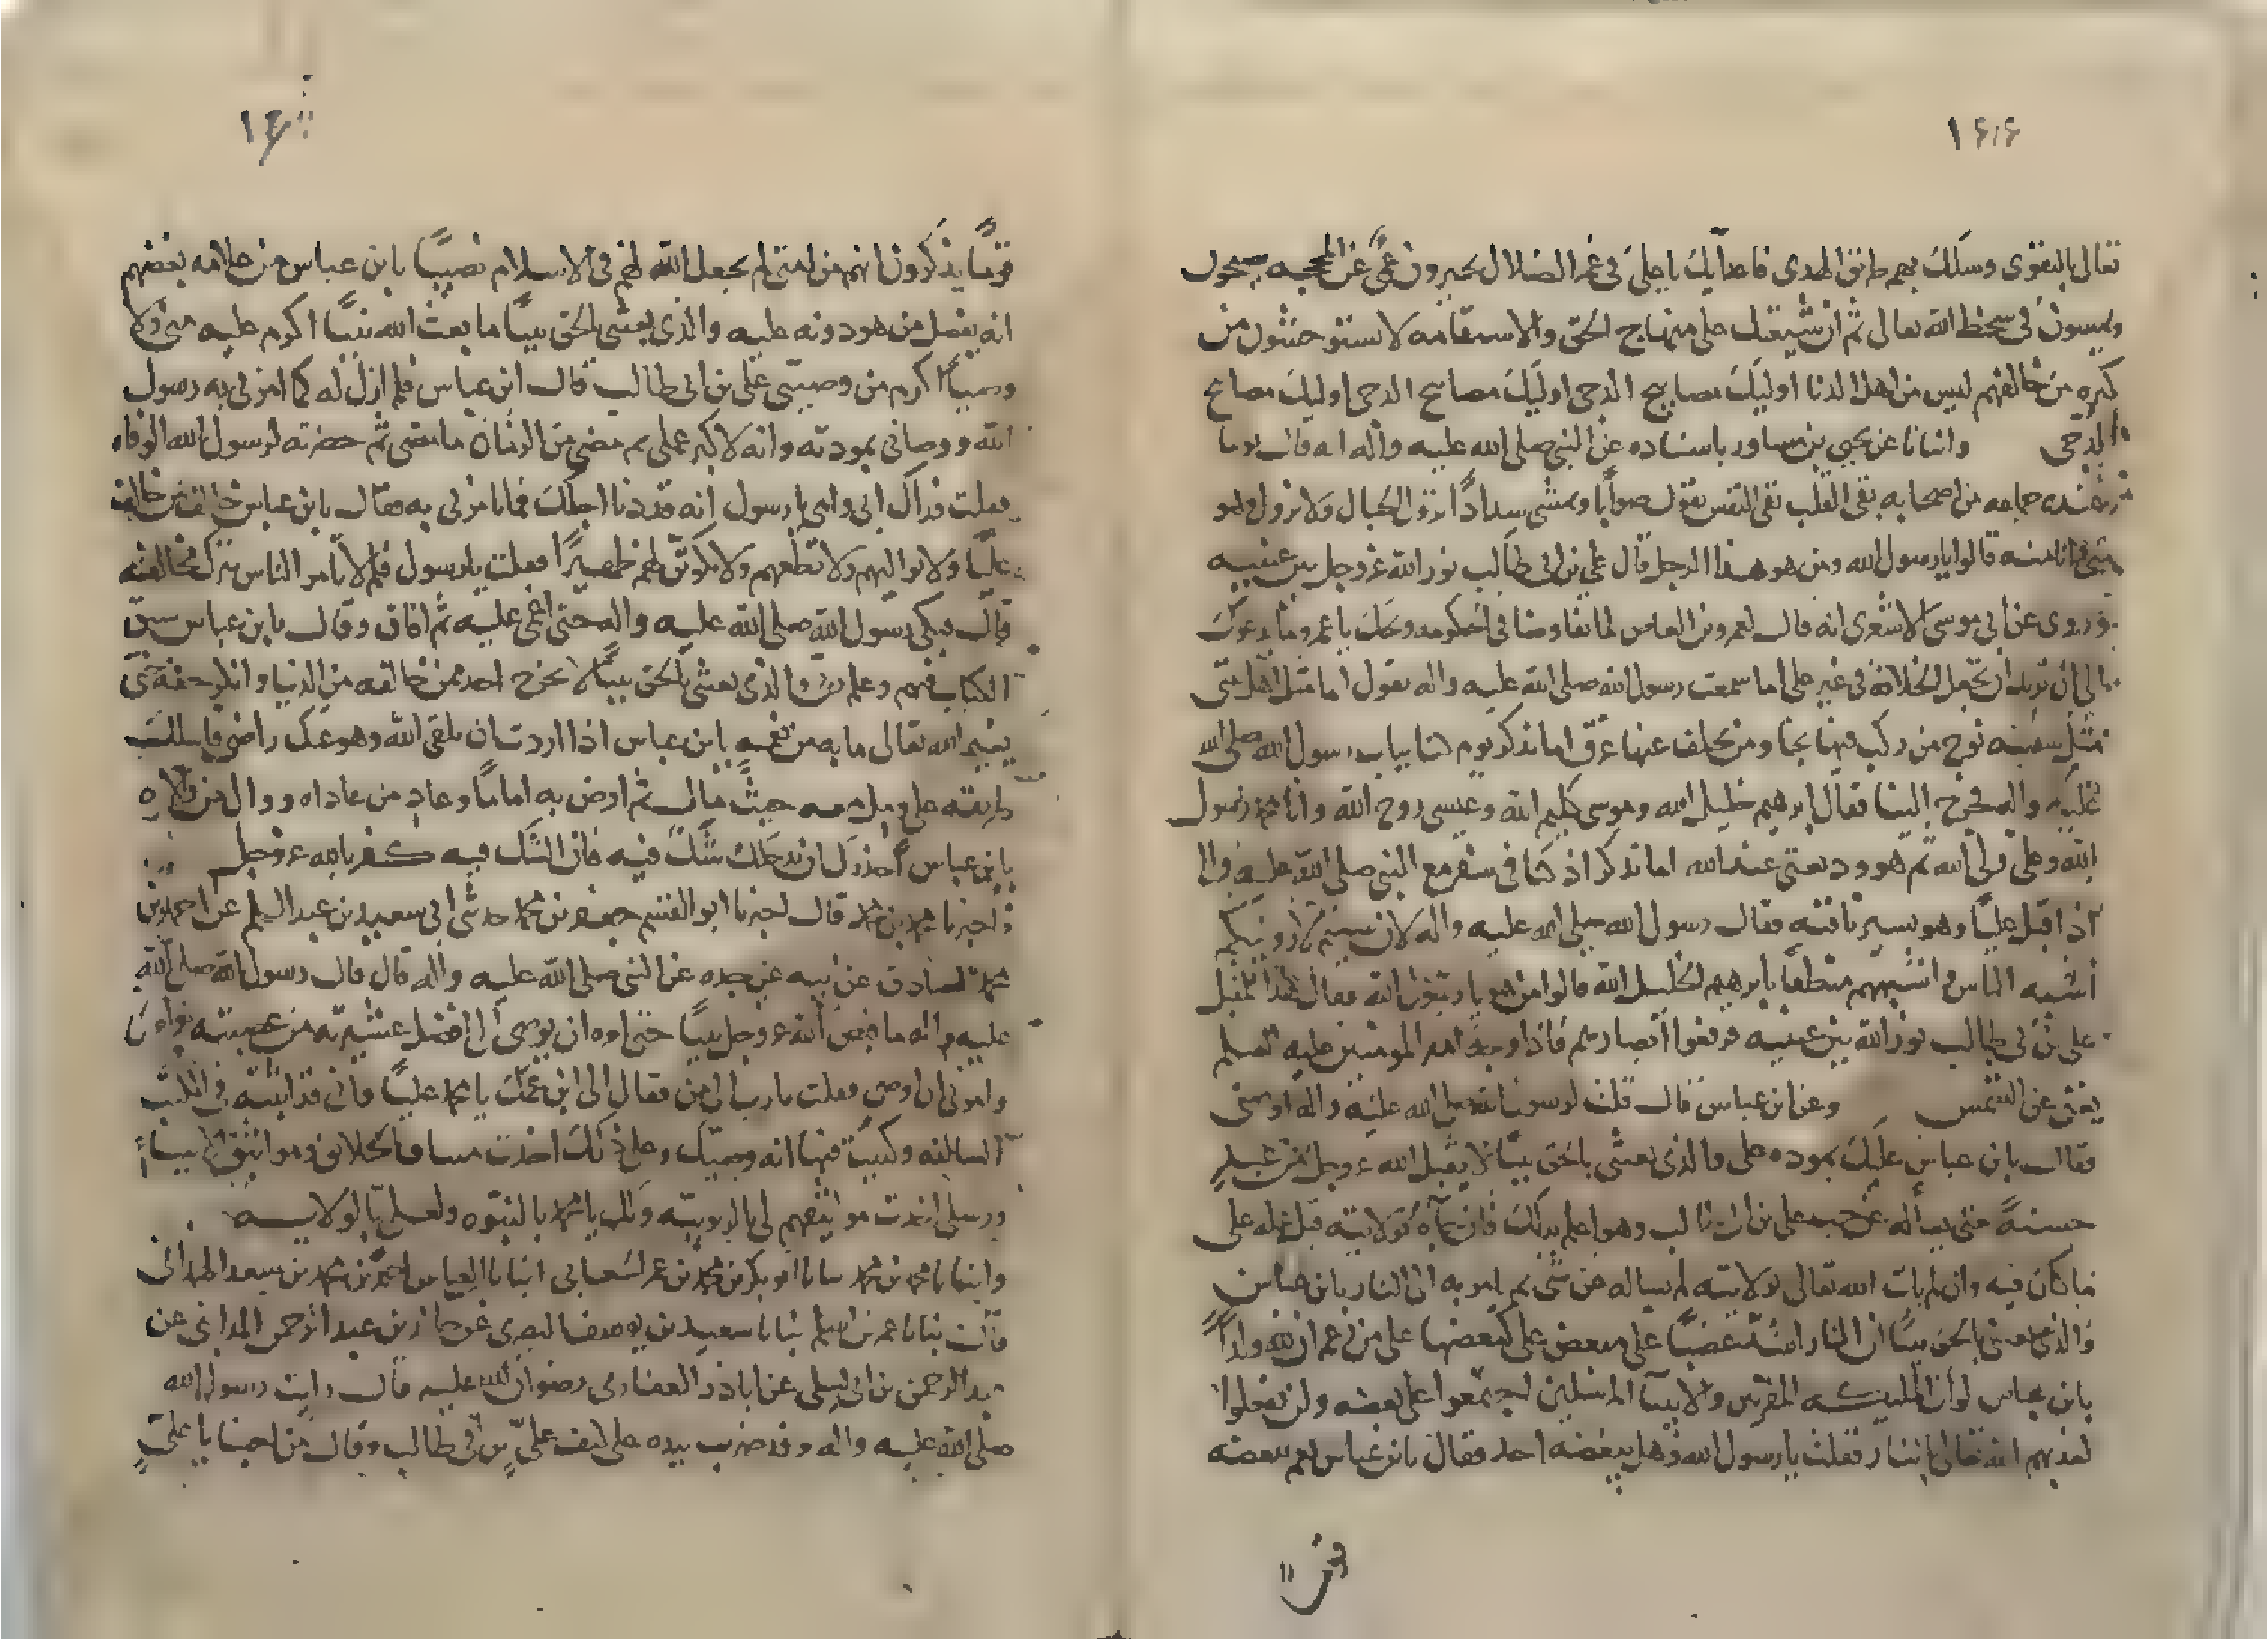 ١٤١٤
تعالى بالتقوى وسلك بهم طريق الهدى فاعدآيك ياعلى فى غمر الضلال يحيرون عمىً عن المحجه يصبحون
ويمسون فى سخط الله تعالى ثم ان شيعتك على منهاج الحق والاستقامه لا يستوحشون من
كثره من خالفهم ليس من اهل الدنيا اوليك مصابيح الدجى اوليك مصابيح الدجى اوليك مصابيح
الدجى وانبانا عن يحيى بن مساور باسناده عن النبى صلى الله عليه واله انه قال يوما
وعنده جماعه من اصحابه نقى القلب نقى النفس يقول صوابا ويمشى سدادًا تزول الجبال ولا يزول وهو
منى وانا منه قالوا يا رسول الله ومن هو هذا الرجل قال على بن ابى طالب نور الله عز وجل بين عينيه
وروى عن ابى موسى الاشعرى انه قال لعمرو بن العاص لما تفاوضا فى الحكومه ويحك يا عمرو ما يدعوك
الى ان تريد ان تجعل الخلافة فى غير على اما سمعت رسول الله صلى الله عليه واله يقول اما مثل اهل بيتى
مثل سفينه نوح من ركب فيها نجا ومن تخلف عنها غرق اما تذكر يوم كنا بباب رسول الله صلى الله
عليه واله فخرج الينا فقال ابرهيم خليل الله وموسى كليم الله وعيسى روح الله وانا محمد رسول
الله وعلى ولى الله ثم هو وديعتى عند الله اما تذكر اذ كنا فى سفر مع النبى صلى الله عليه واله
اذ اقبل عليًا وهو يسير ناقته فقال رسول الله صلى الله عليه واله لان
اشبه الناس بابرهيم الخليل الله قالوا من هو يا رسول الله فقال هذا المقبل
على بن ابى طالب نور الله بين عينيه فرفعوا ابصارهم فاذا وجه امير المومنين عليه السلم
يغشى عن الشمس وعن ابن عباس قال قلت لرسول الله صلى الله عليه واله اوصنى
فقال يا بن عباس عليك بموده على والذى بعثنى بالحق نبيًا لا يقبل الله عز وجل من عبدٍ
حسنهً حتى يساله عن حب على بن ابى طالب وهو اعلم بذلك فان جآه بولايته قبل عمله على
ما كان فيه وان لم يات الله تعالى بولايته لم يساله عن شى ثم امر به الى النار يا بن عباس
والذى بعثنى بالحق نبيًا ان النار اشد غضبًا على مبغض على كبغضها على من زعم ان لله ولدًا
يا بن عباس لو ان المليكه المقربين والانبيآ المرسلين اجتمعوا على بغضه ولن يفعلوا
لعذبهم الله تعالى بالنار فقلت يا رسول الله وهل يبغضه احد فقال يا بن عباس نعم يبغضه
قومًا يذكرون انهم من امتى لم يجعل الله لهم فى الاسلام نصيبًا يا بن عباس من علامه بغضهم
انه يفضل من هو دونه عليه والذى بعثنى بالحق نبيًا ما بعث الله نبيًا اكرم عليه منى ولا
وصيًا اكرم من وصيى على بن ابى طالب قال ابن عباس فلم ازل له كما امرنى به رسول
الله ووصانى بمودته وانه لاكبر عملى ثم مضى من الزمان ما مضى ثم حضرته لرسول الله الوفاه
فقلت فداك ابى وامى يا رسول انه قد دنا اجلك فما تامرنى به فقال يا بن عباس خالف من خالف
عليًا ولا تواليهم ولا تطعهم ولا تكونن لهم ظهيرًا فقلت يا رسول فلم لا تامر الناس بترك مخالفته
قال فبكى رسول الله صلى الله عليه واله حتى اغمى عليه ثم افاق وقال يا بن عباس سبق
الكتاب فيهم وعلم ربى والذى بعثنى بالحق نبيًا لا يخرج احد ممن خالفه من الدنيا وانكر حقه حتى
يغير الله تعالى ما به من نعمه يا بن عباس اذا اردت ان تلقى الله وهو عنك راضٍ فاسلك
طريقه على ومل معه حيث مال ثم ارض به امامًا وعادِ من عاداه ووال من والاه
يا بن عباس احذر ان يدخلك شك فيه فان الشك فيه كفر بالله عز وجل
اخبرنا محمد بن محمد قال اخبرنا ابو القسم جعفر بن محمد حدثنى ابى سعيد بن عبد السلم عن احمد بن
محمد الصادق عن ابيه عن جده عن النبى صلى الله عليه واله قال قال رسول الله صلى الله
عليه واله ما قبض الله عز وجل نبيًا حتى امره ان يوصى الى افضل عشيرته من عصبته
وامرنى ان اوصى فقلت يا رب الى من فقال الى ابن عمك يا محمد عليًا فانى قد اثبته فى الكتب
السالفه وكتبت فيها انه وصيك وعلى ذلك اخذت ميثاق الخلايق ومواثيق انبيائى
ورسلى اخذت مواثيقهم لى بالربوبيه ولك يا محمد بالنبوه ولعلى بالولايه
وانبانا محمد بن محمد انبانا ابو بكر بن محمد بن عمر الجعابى انبانا ابو العباس احمد بن محمد بن سعد الهمدانى
قال انبانا عمر بن اسلم انبانا سعيد بن يوسف البصرى عن خالد بن عبد الرحمن المداينى عن
عبد الرحمن بن ابى ليلى عن اباذر الغفارى رضوان الله عليه قال رايت رسول الله
صلى الله عليه واله وقد ضرب بيده على كتف على بن ابى طالب وقال من احبنا يا على